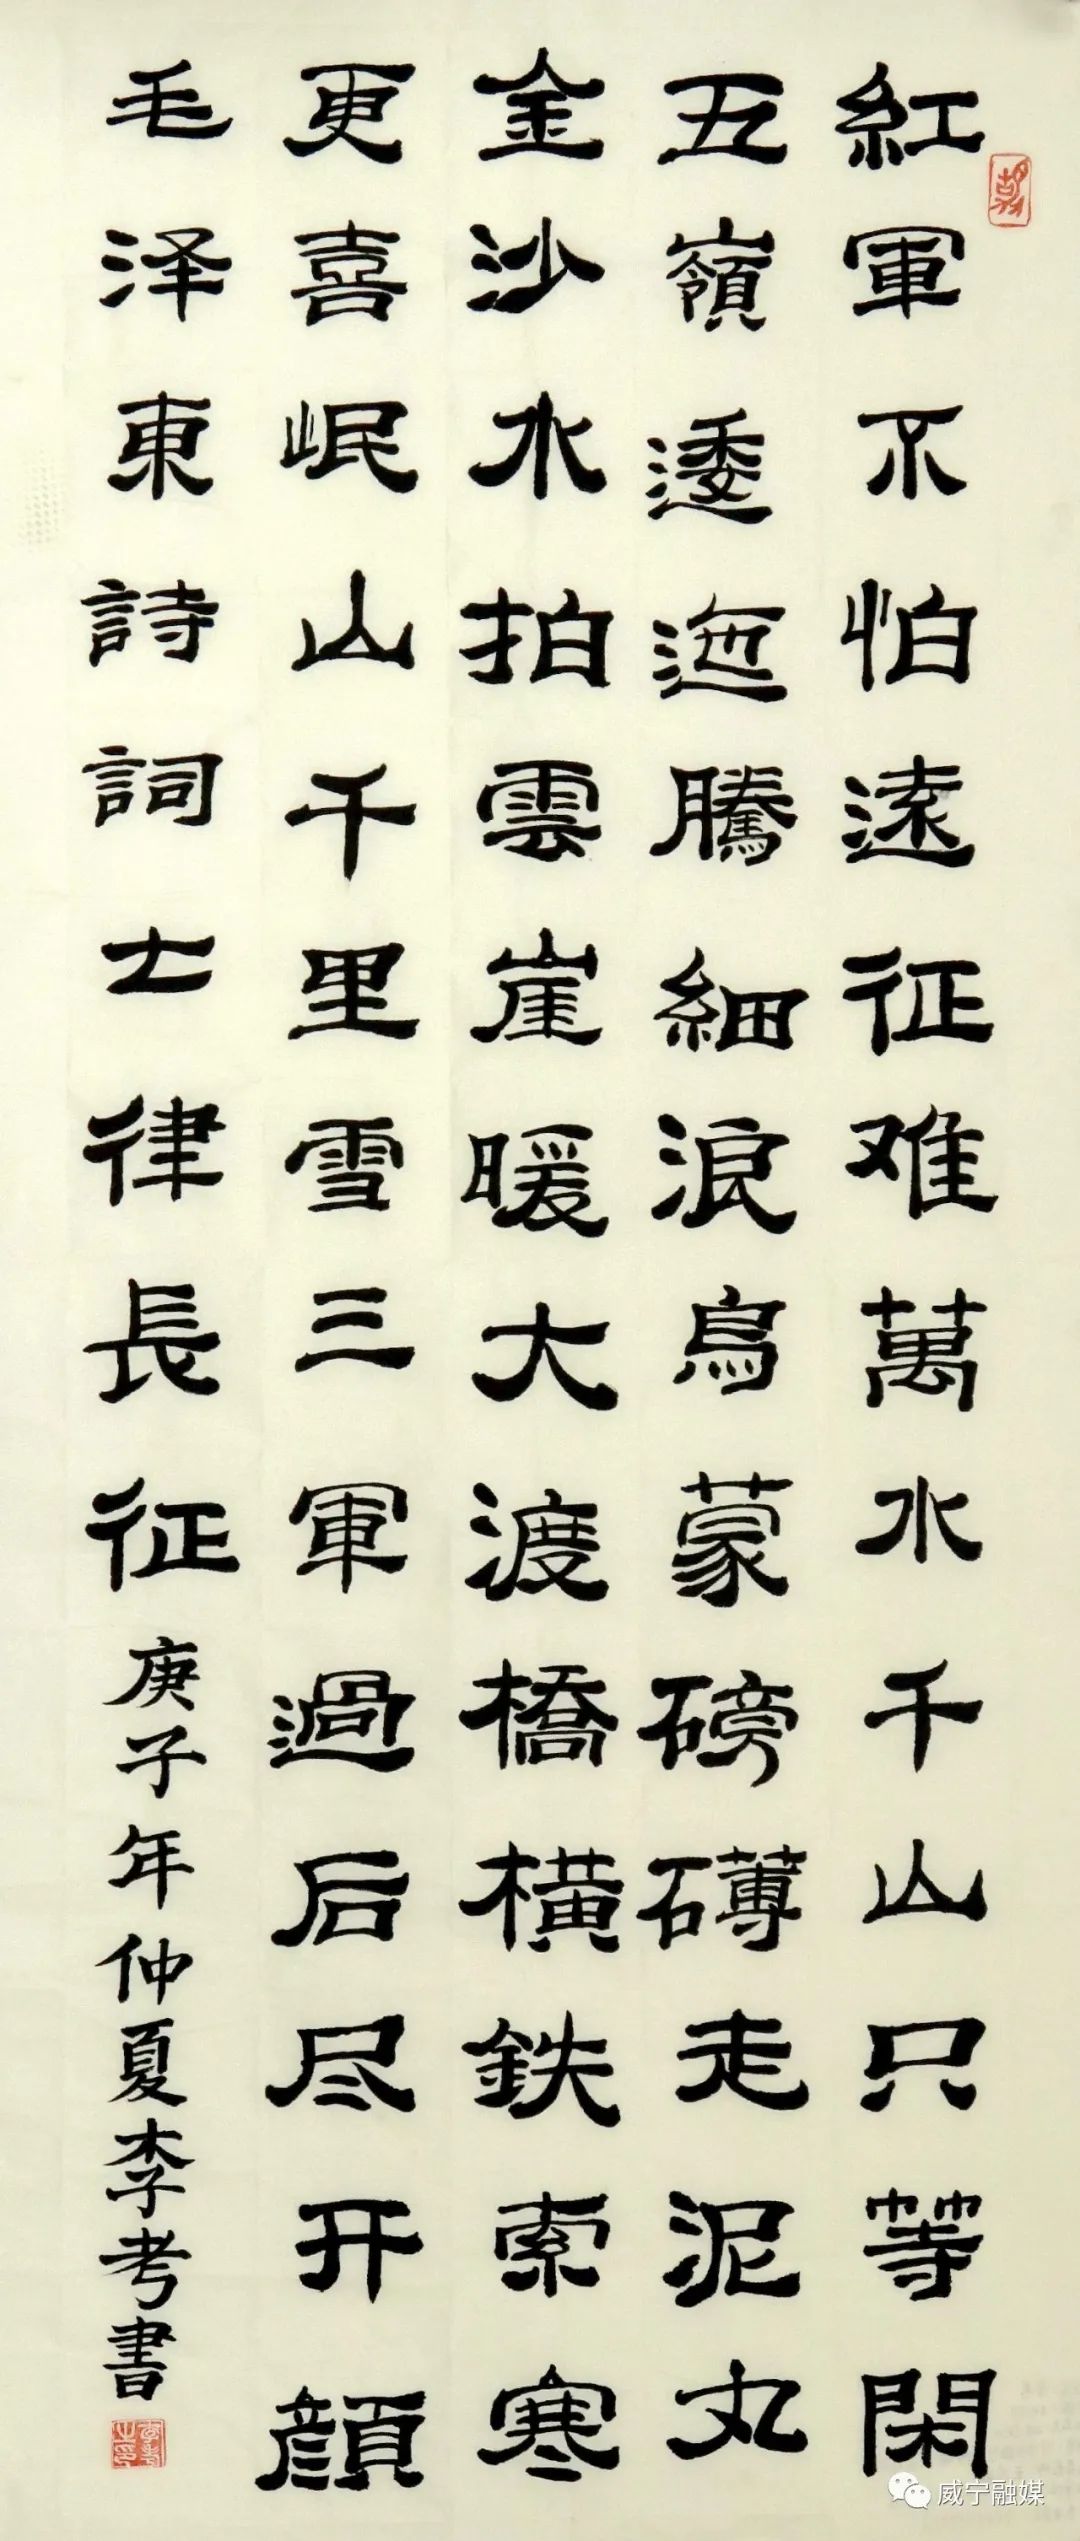 紅軍不怕遠征难萬水千山只等閑
五嶺逶迤騰細浪烏蒙磅礴走泥丸
金沙水拍雲崖暖大渡橋橫鉄索寒
更喜岷山千里雪三軍過后尽开顏
毛泽東詩詞七律長征庚子年仲夏李考書
威宁融媒